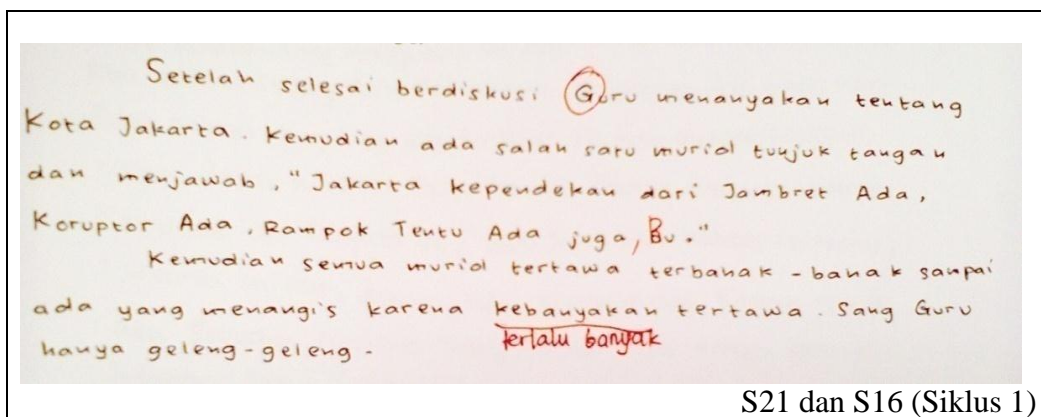 Setelah selesai berdiskusi Guru menanyakan tentang
Kota Jakarta. Kemudian ada salah satu murid tunjuk tangan
dan menjawab, "Jakarta kependekan dari Jambret Ada,
Koruptor Ada, Rampok Tentu Ada juga, Bu."
Kemudian semua murid tertawa terbahak-bahak sampai
ada yang menangis karena kebanyakan tertawa. Sang Guru
terlalu banyak
hanya geleng-geleng.
S21 dan S16 (Siklus 1)